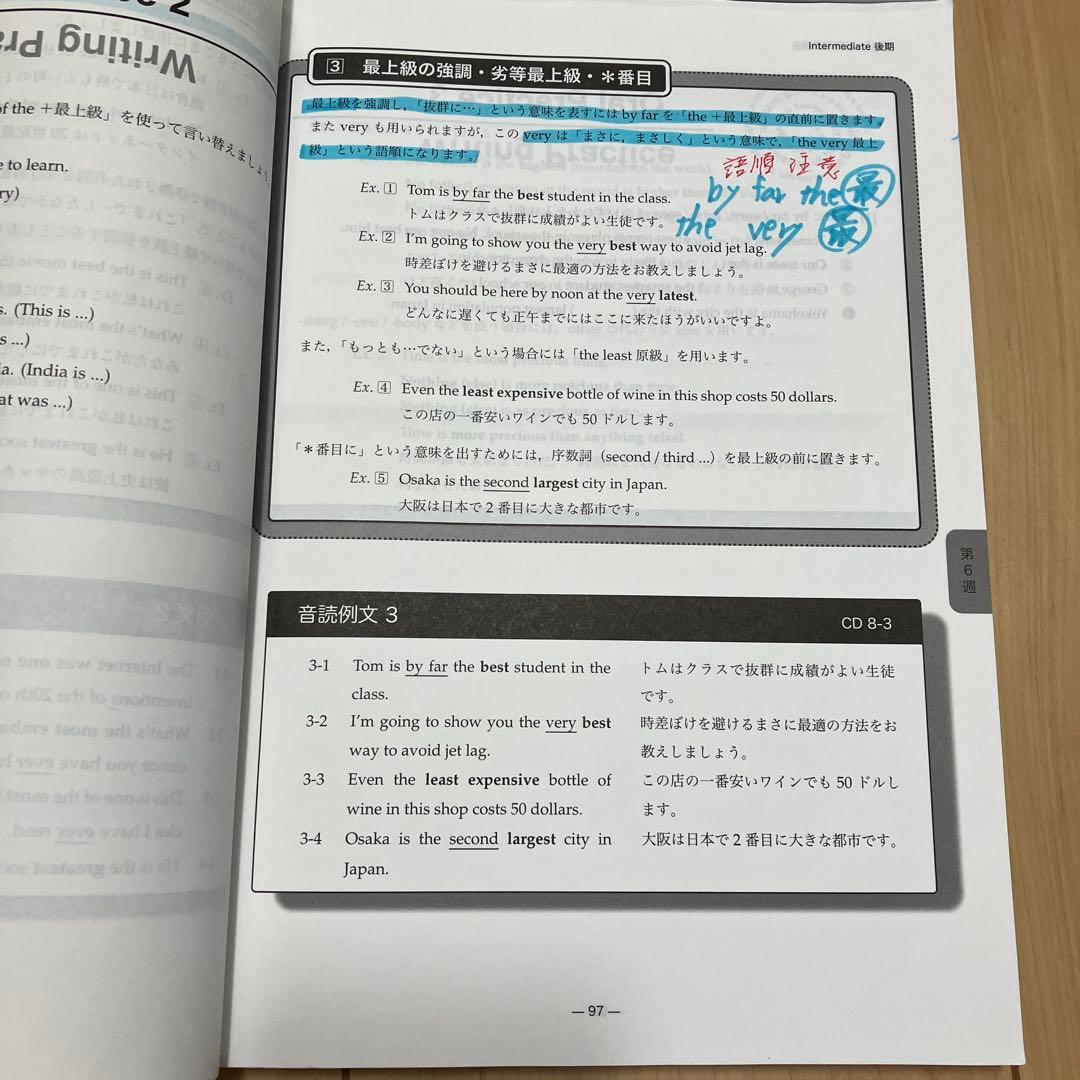 Writing Pra
of the ＋最上級」を使って言い替えましょう。
e to learn.
ry)
s. (This is ...)
s ...)
ia. (India is ...)
at was ...)
Intermediate 後期
3 最上級の強調・劣等最上級・＊番目
最上級を強調し，「抜群に…」という意味を表すには by far を「the＋最上級」の直前に置きます。
また very も用いられますが，この very は「まさに，まさしく」という意味で，「the very 最上
級」という語順になります。
語順 注意
by far the 最
the very 最
Ex. 1 Tom is by far the best student in the class.
トムはクラスで抜群に成績がよい生徒です。
Ex. 2 I'm going to show you the very best way to avoid jet lag.
時差ぼけを避けるまさに最適の方法をお教えしましょう。
Ex. 3 You should be here by noon at the very latest.
どんなに遅くても正午までにはここに来たほうがいいですよ。
また，「もっとも…でない」という場合には「the least 原級」を用います。
Ex. 4 Even the least expensive bottle of wine in this shop costs 50 dollars.
この店の一番安いワインでも 50 ドルします。
「＊番目に」という意味を出すためには，序数詞（second / third ...）を最上級の前に置きます。
Ex. 5 Osaka is the second largest city in Japan.
大阪は日本で 2 番目に大きな都市です。
第6週
音読例文 3
CD 8-3
3-1 Tom is by far the best student in the トムはクラスで抜群に成績がよい生徒
class. です。
3-2 I'm going to show you the very best 時差ぼけを避けるまさに最適の方法をお
way to avoid jet lag. 教えしましょう。
3-3 Even the least expensive bottle of この店の一番安いワインでも 50 ドルし
wine in this shop costs 50 dollars. ます。
3-4 Osaka is the second largest city in 大阪は日本で 2 番目に大きな都市です。
Japan.
— 97 —